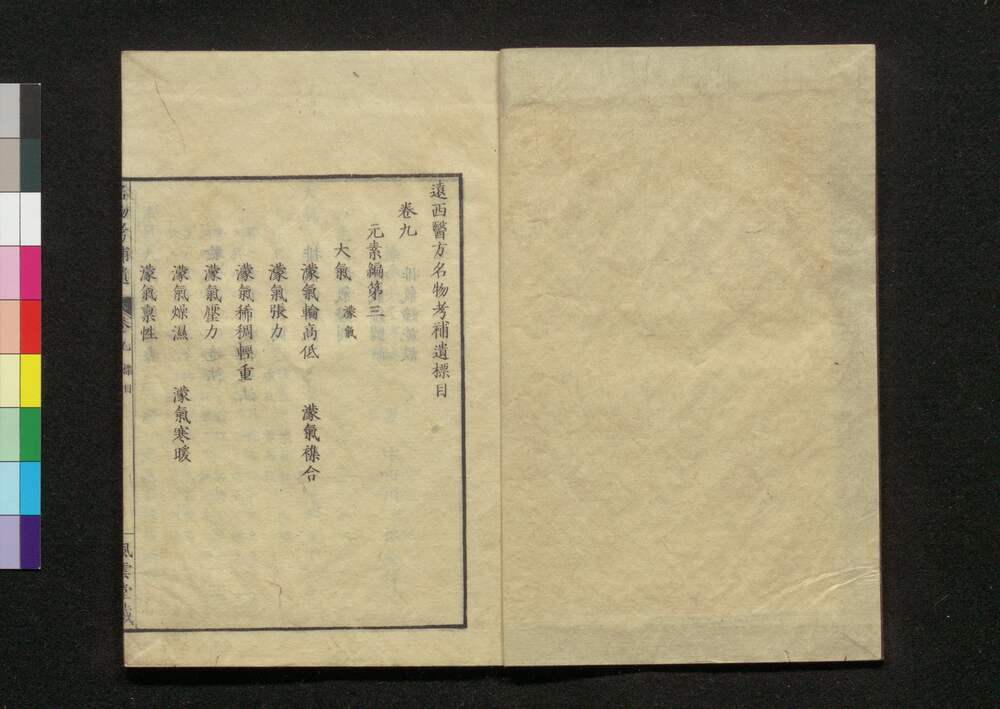 遠西醫方名物考補遺標目
卷九
元素編第三
大氣 濛氣
濛氣輪高低 濛氣襍合
濛氣張力
濛氣稀稠輕重
濛氣壓力
濛氣燥濕 濛氣寒暖
濛氣稟性
名物考補遺 卷九 標目 風雲堂藏